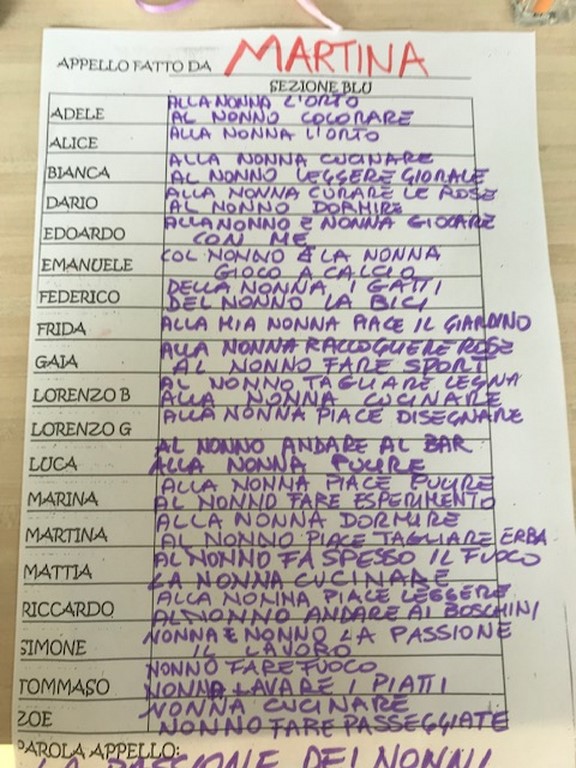 APPELLO FATTO DA MARTINA
SEZIONE BLU
ADELE ALLA NONNA L'ORTO
AL NONNO COLORARE
ALICE ALLA NONNA L'ORTO
BIANCA ALLA NONNA CUCINARE
AL NONNO LEGGERE GIORALE
DARIO ALLA NONNA CURARE LE ROSE
AL NONNO DORMIRE
EDOARDO ALLA NONNO E NONNA GIOCARE
CON ME
EMANUELE COL NONNO E LA NONNA
GIOCO A CALCIO
FEDERICO DELLA NONNA I GATTI
DEL NONNO LA BICI
FRIDA ALLA MIA NONNA PIACE IL GIARDINO
GAIA ALLA NONNA RACCOGLIERE ROSE
AL NONNO FARE SPORT
LORENZO B AL NONNO TAGLIARE LEGNA
ALLA NONNA CUCINARE
LORENZO G ALLA NONNA PIACE DISEGNARE
AL NONNO ANDARE AL BAR
LUCA ALLA NONNA PULIRE
MARINA ALLA NONNA PIACE PULIRE
AL NONNO FARE ESPERIMENTO
MARTINA ALLA NONNA DORMIRE
AL NONNO PIACE TAGLIARE ERBA
MATTIA AL NONNO FA SPESSO IL FUOCO
LA NONNA CUCINARE
RICCARDO ALLA NONNA PIACE LEGGERE
AL NONNO ANDARE AI BOSCHINI
SIMONE NONNA E NONNO LA PASSIONE
IL LAVORO
TOMMASO NONNO FARE FUOCO
NONNA LAVARE I PIATTI
ZOE NONNA CUCINARE
NONNO FARE PASSEGGIATE
PAROLA APPELLO:
LA PASSIONE DEI NONNI